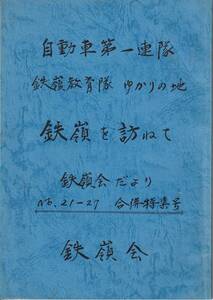 自動車第一連隊
鉄嶺教育隊 ゆかりの地
鉄嶺を訪ねて
鉄嶺会だより
No.21-27 合併特集号
鉄嶺会